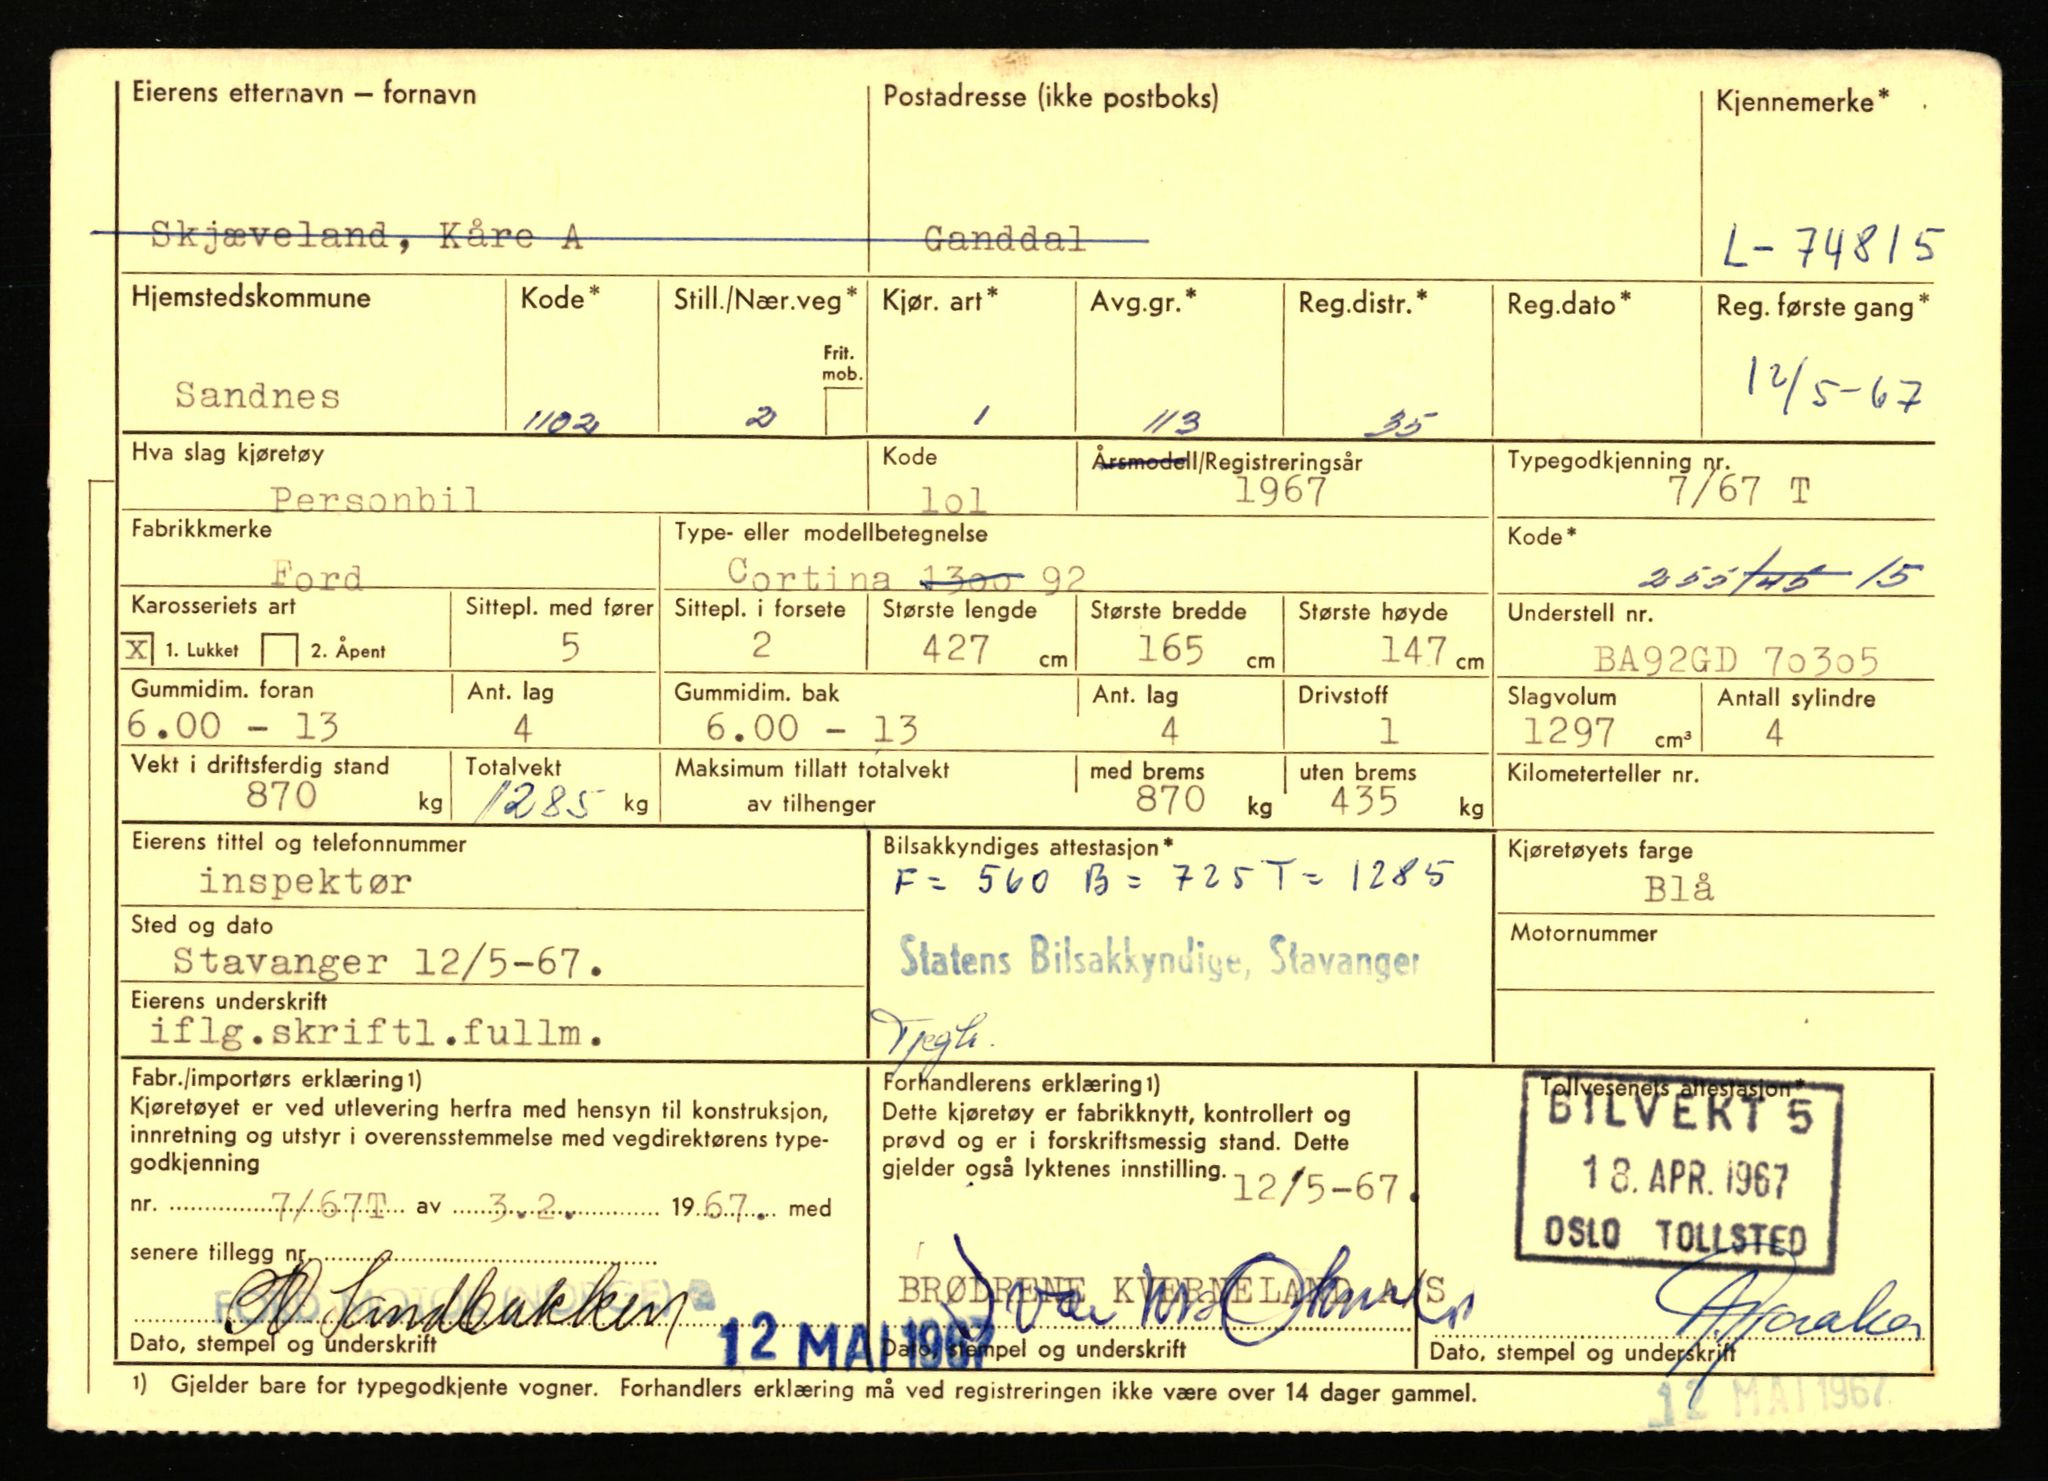 Eierens etternavn – fornavn Postadresse (ikke postboks) Kjennemerke*
Skjæveland, Kåre A Ganddal L-74815
Hjemstedskommune Kode* Still./Nær.veg* Kjør. art* Avg.gr.* Reg.distr.* Reg.dato* Reg. første gang*
Frit. mob.
Sandnes 1102 2 1 113 35 12/5-67
Hva slag kjøretøy Kode Årsmodell/Registreringsår Typegodkjenning nr.
Personbil lol 1967 7/67 T
Fabrikkmerke Type- eller modellbetegnelse Kode*
Ford Cortina 1300 92 255/45 15
Karosseriets art Sittepl. med fører Sittepl. i forsete Største lengde Største bredde Største høyde Understell nr.
X 1. Lukket 2. Åpent 5 2 427 cm 165 cm 147 cm BA92GD 70305
Gummidim. foran Ant. lag Gummidim. bak Ant. lag Drivstoff Slagvolum Antall sylindre
6.00 - 13 4 6.00 - 13 4 1 1297 cm³ 4
Vekt i driftsferdig stand Totalvekt Maksimum tillatt totalvekt med brems uten brems Kilometerteller nr.
870 kg 1285 kg av tilhenger 870 kg 435 kg
Eierens tittel og telefonnummer Bilsakkyndiges attestasjon* Kjøretøyets farge
inspektør F= 560 B= 725 T= 1285 Blå
Sted og dato Motornummer
Stavanger 12/5-67. Statens Bilsakkyndige, Stavanger
Eierens underskrift
iflg.skriftl.fullm.
Fabr./importørs erklæring1) Forhandlerens erklæring1) Tollvesenets attestasjon*
Kjøretøyet er ved utlevering herfra med hensyn til konstruksjon, Dette kjøretøy er fabrikknytt, kontrollert og BILVEKT 5
innretning og utstyr i overensstemmelse med vegdirektørens type- prøvd og er i forskriftsmessig stand. Dette
godkjenning gjelder også lyktenes innstilling. 12/5-67. 18. APR. 1967
nr. 7/67T av 3.2. 1967. med
senere tillegg nr. OSLO TOLLSTED
Sandbakken BRØDRENE KVERNELAND A/S
Dato, stempel og underskrift 12 MAI 1967 Dato, stempel og underskrift Dato, stempel og underskrift
1) Gjelder bare for typegodkjente vogner. Forhandlers erklæring må ved registreringen ikke være over 14 dager gammel. 12 MAI 1967